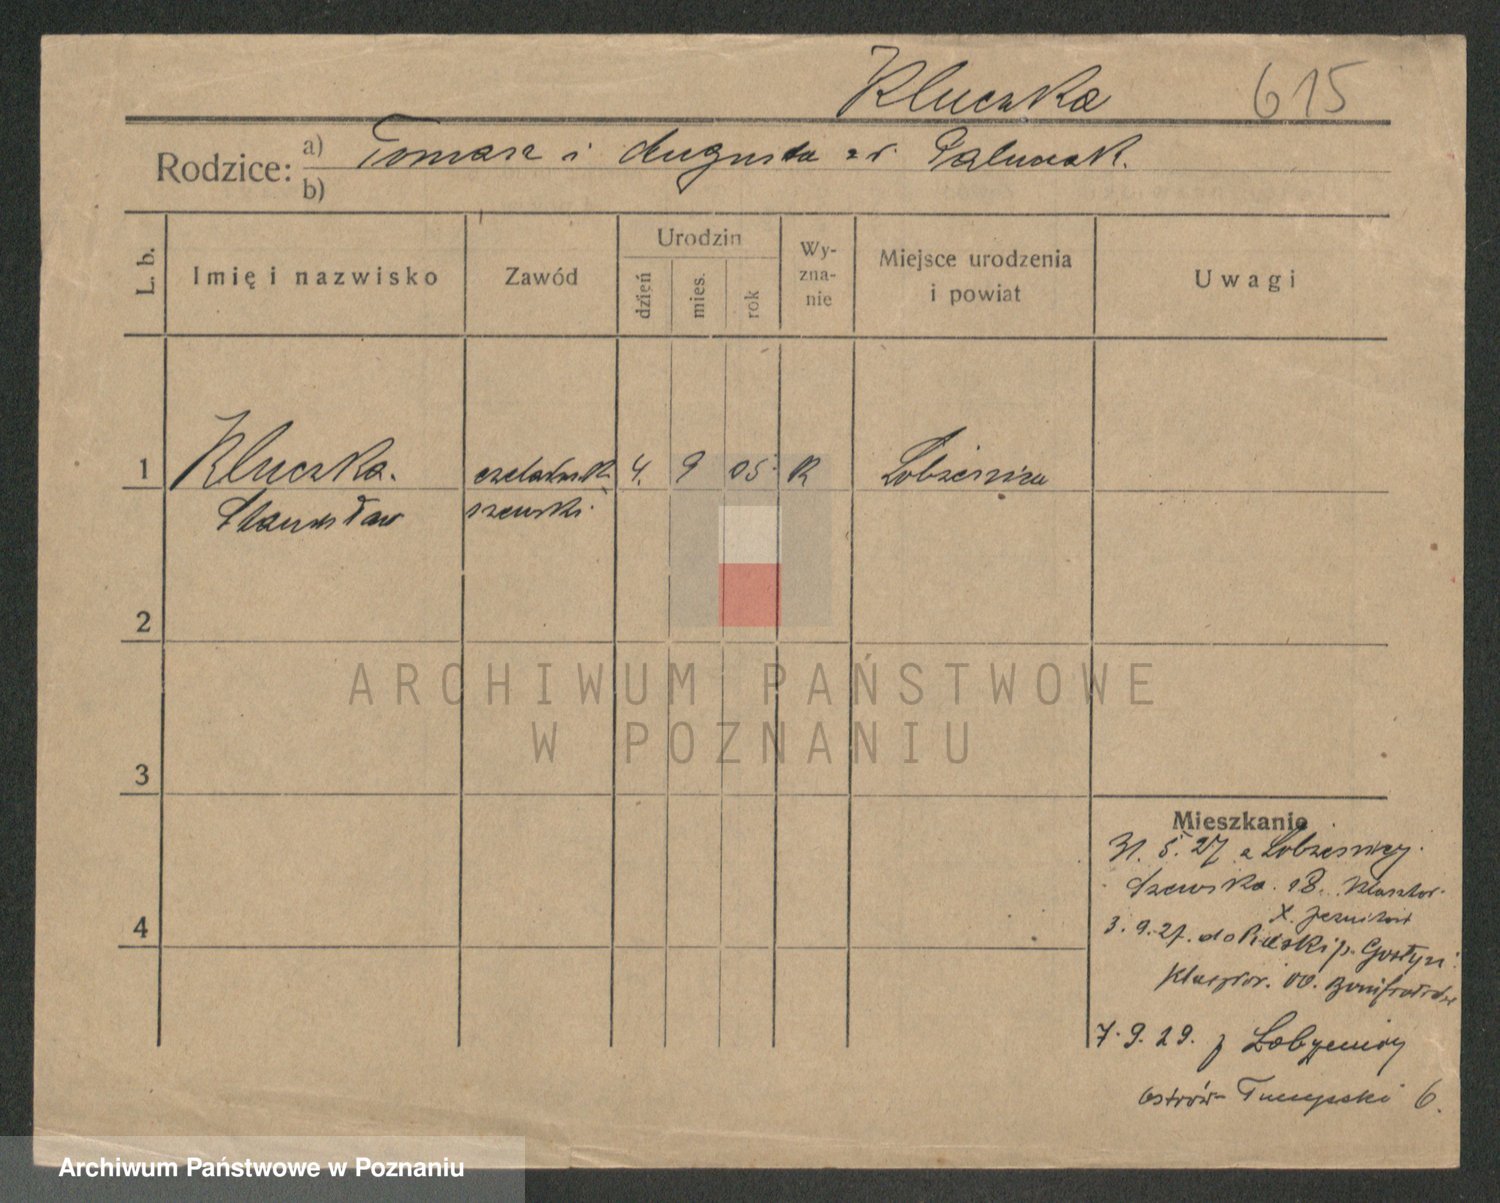 Kluczka 615
Rodzice: a) Tomasz i Augusta z d. Paluszak.
b)
L. b.
Imię i nazwisko
Zawód
Urodzin
dzień
mies.
rok
Wy-
zna-
nie
Miejsce urodzenia
i powiat
Uwagi
1 Kluczka. czeladnik 4. 9 05. k Łobżenica
Stanisław szewski.
2
ARCHIWUM PAŃSTWOWE
W POZNANIU
3
Mieszkanie
31. 5. 27 z Łobżenicy.
Szewska 18. Klasztor.
X. Jezuitów
4
3. 9. 27. do Piaski p. Gostyń.
Klasztor. OO. Bonifratrów
7. 9. 29. z Łobżenicy
Ostrów Tumski 6.
Archiwum Państwowe w Poznaniu